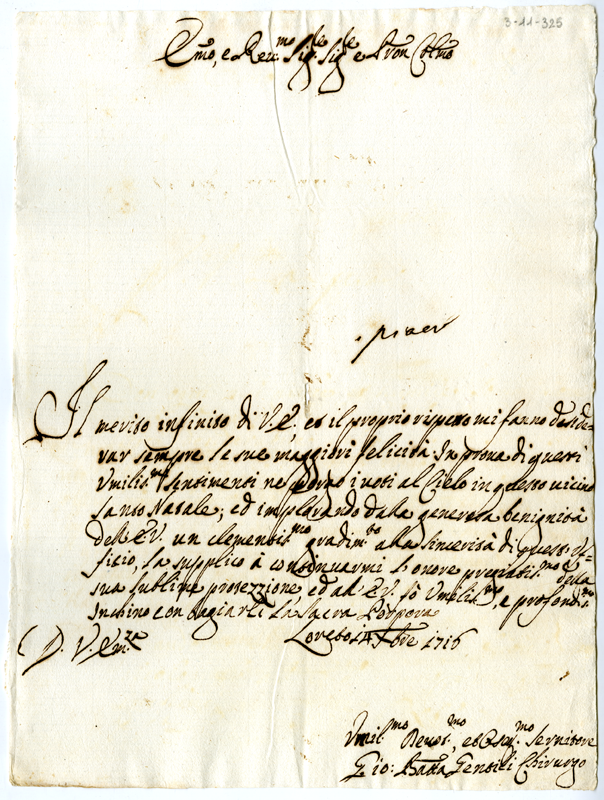 3-11-325
Emo, e Reu.mo Sig.re Sig.re e Pron Colmo
Il merito infinito di V.E., et il proprio rispetto mi fanno deside-
rar sempre le sue maggiori felicità. In prova di questi
Vmiliss.mi sentimenti ne porgo i voti al Cielo in questo vicino
Santo Natale; ed implorando dalla generosa benignità
dell'E.V. un clementiss.mo gradim.to alla sincerità di quest'Vf-
ficio, la supplico à continuarmi l'onore pregiatiss.mo della
sua sublime protezzione, ed all'E.V. fò Vmiliss.mo, e profondiss.mo
Inchino con bagiarle la Sacra Porpora
Loreto 14 Xbre 1716
D. V. Em.za
Vmil.mo Deuot.mo, et Oseq.mo Seruitore
Gio: Batta Gentili Chirurgo